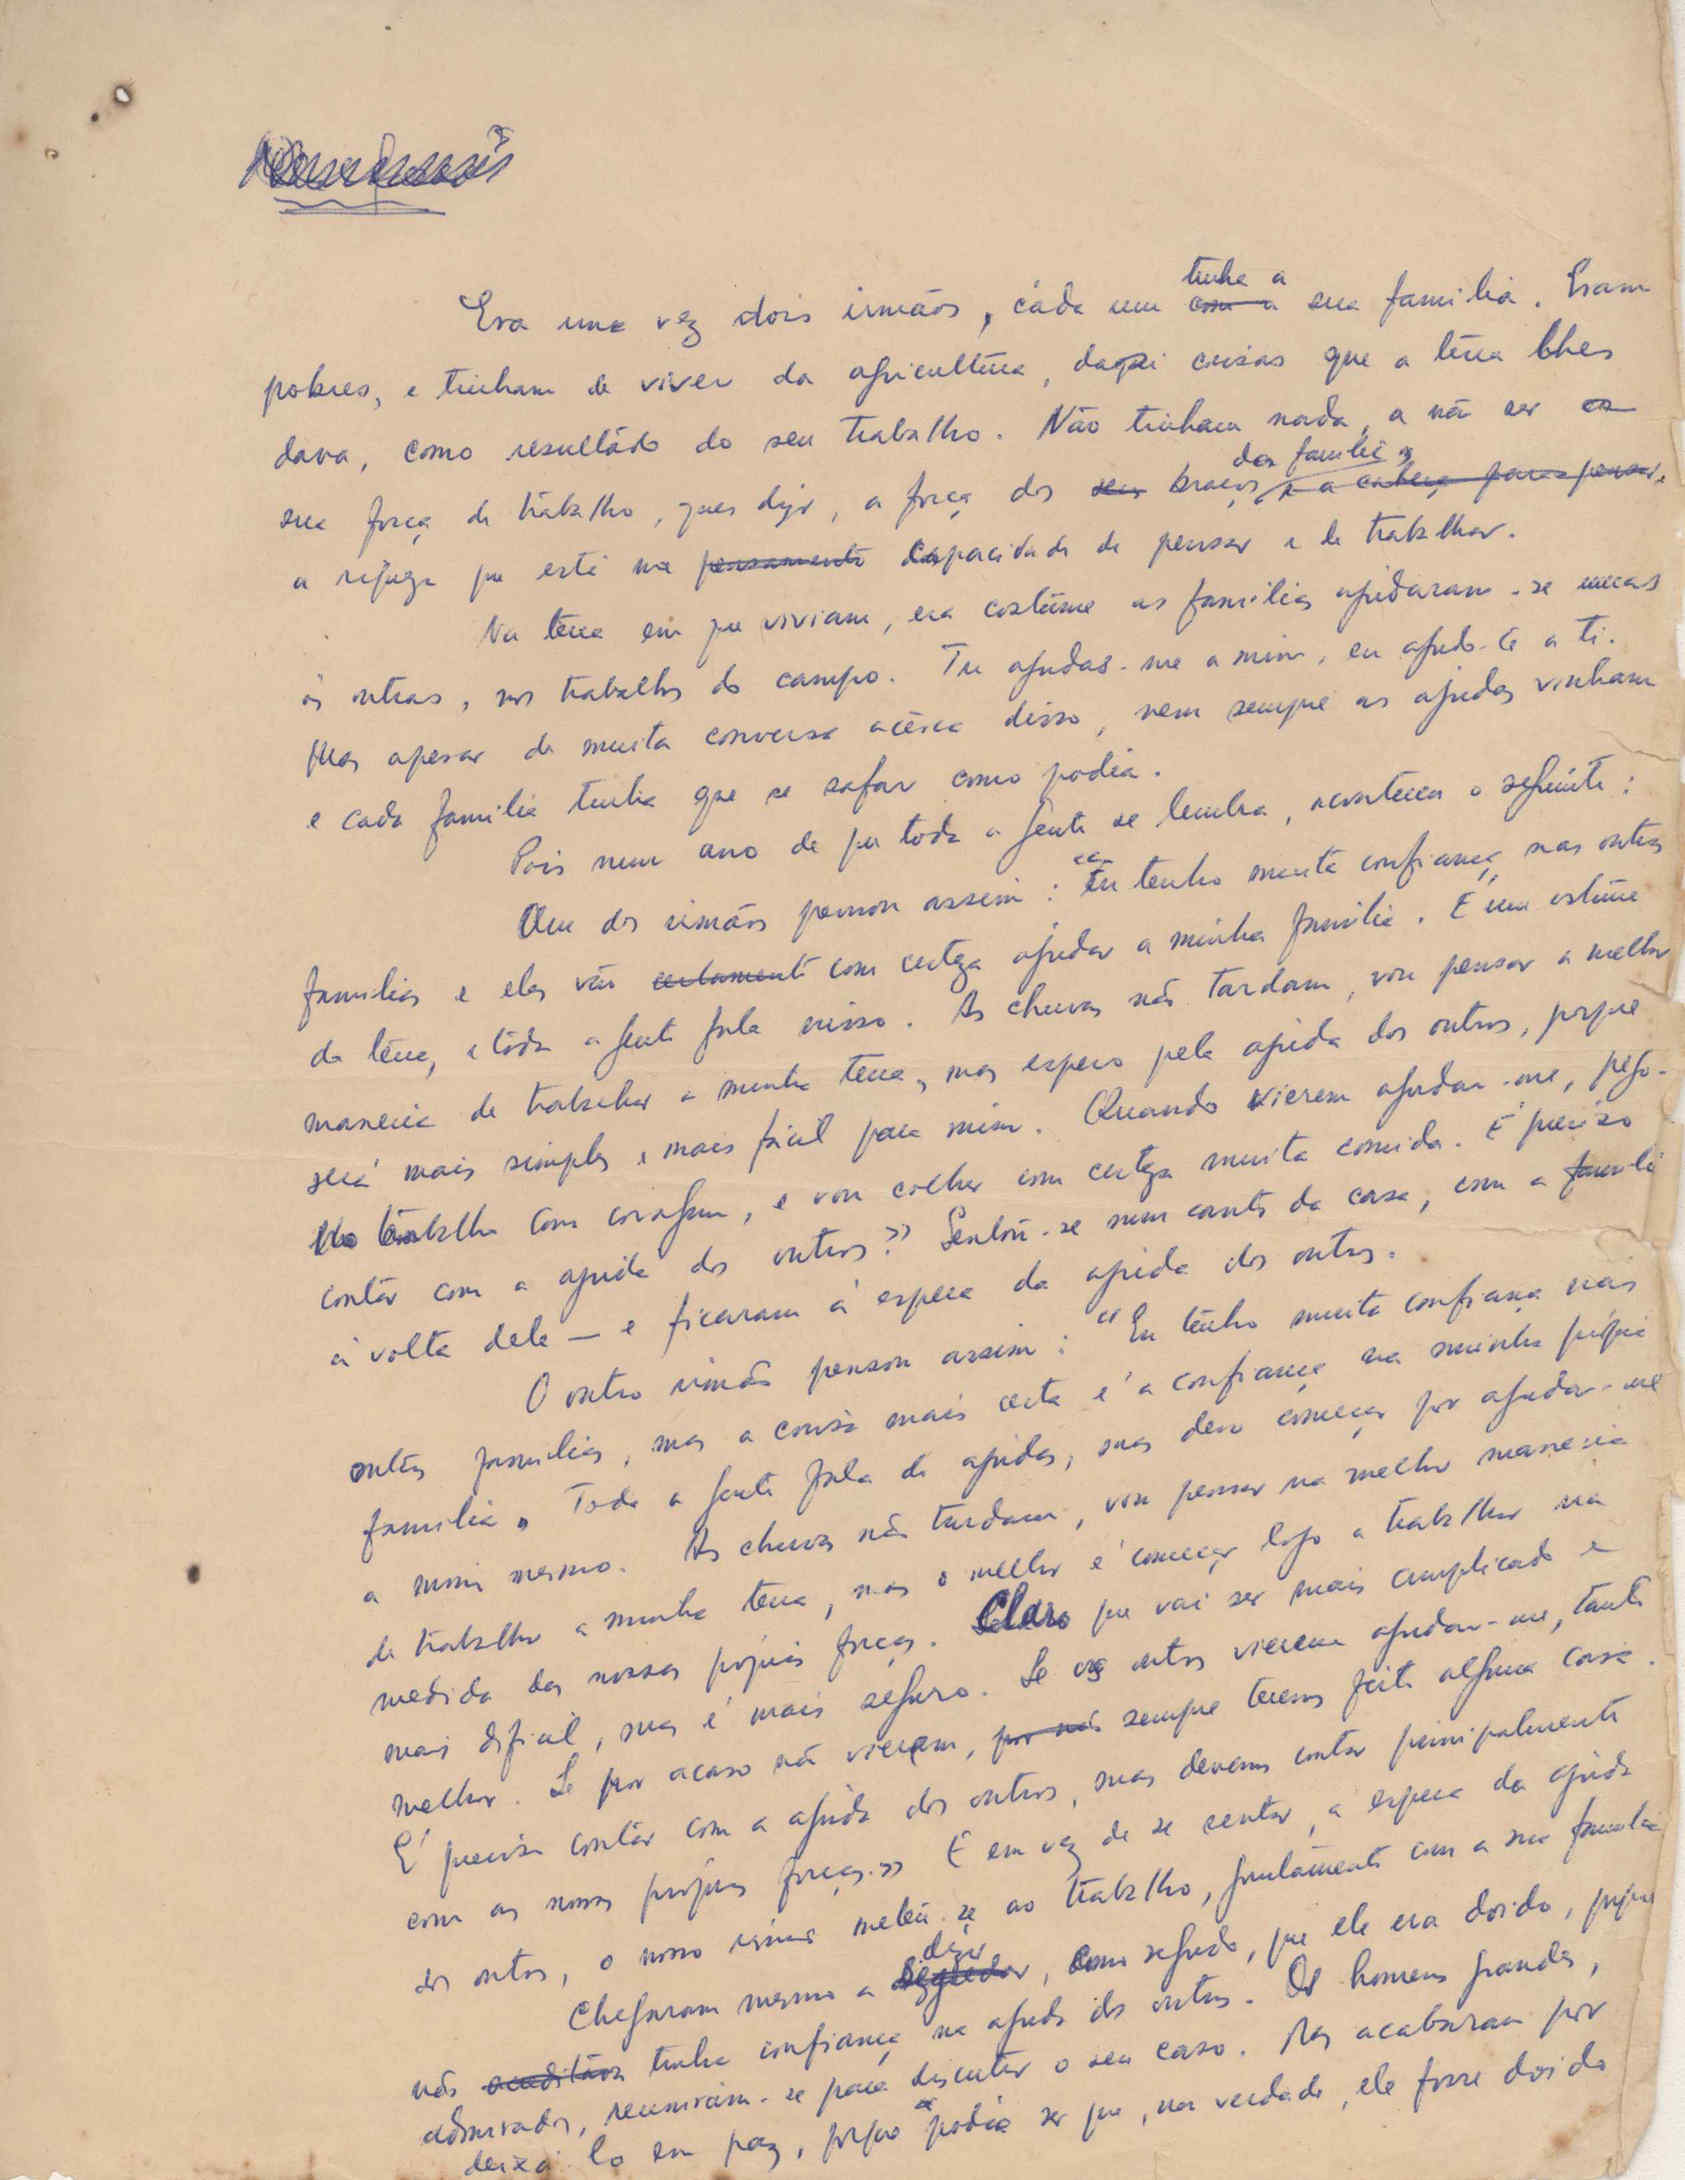 Era uma vez dois irmãos, cada um tinha a
com a sua familia. Eram
pobres, e tinham de viver da agricultura, daqui coisas que a terra lhes
dava, como resultado do seu trabalho. Não tinham nada, a não ser a
sua força de trabalho, quer dizer, a força dos seus braços das familias e a cabeça para pensar,
a riqueza que está na pensamento capacidade de pensar e de trabalhar.
Na terra em que viviam, era costume as familias ajudaram-se umas
ás outras, nos trabalhos do campo. Tu ajudas-me a mim, eu ajudo-te a ti.
Mas apesar de muita conversa acêrca disso, nem sempre as ajudas vinham
e cada familia tinha que se safar como podia.
Pois num ano de que toda a gente se lembra, aconteceu o seguinte:
Um dos irmãos pensou assim: "Eu tenho muita confiança nas outras
familias e elas vão certamente com certeza ajudar a minha familia. É um costume
da terra, e toda a gente fala nisso. As chuvas não tardam, vou pensar a melhor
maneira de trabalhar a minha terra, mas espero pela ajuda dos outros, porque
será mais simples e mais fácil para mim. Quando vierem ajudar-me, pego-
no trabalho com coragem, e vou colher com certeza muita comida. É preciso
contar com a ajuda dos outros." Sentou-se num canto da casa, com a familia
á volta dele — e ficaram á espera da ajuda dos outros.
O outro irmão pensou assim: "Eu tenho muita confiança nas
outras familias, mas a coisa mais certa é a confiança na minha própria
familia. Toda a gente fala de ajudas, mas devo começar por ajudar-me
a mim mesmo. As chuvas não tardam, vou pensar na melhor maneira
de trabalhar a minha terra, mas o melhor é começar logo a trabalhar na
medida das nossas próprias forças. Claro que vai ser mais complicado e
mais dificil, mas é mais seguro. Se os outros vierem ajudar-me, tanto
melhor. Se por acaso não vierem, por nós sempre teremos feito alguma coisa.
É preciso contar com a ajuda dos outros, mas devemos contar principalmente
com as nossas próprias forças." E em vez de se sentar, á espera da ajuda
dos outros, o nosso irmão meteu-se ao trabalho, juntamente com a sua familia
Chegaram mesmo a dizer, como segredo, que ele era doido, porque
não acreditava tinha confiança na ajuda dos outros. Os homens grandes,
admirados, reuniram-se para discutir o seu caso. Mas acabaram por
deixá-lo em paz, porque podia ser que, na verdade, ele fosse doido